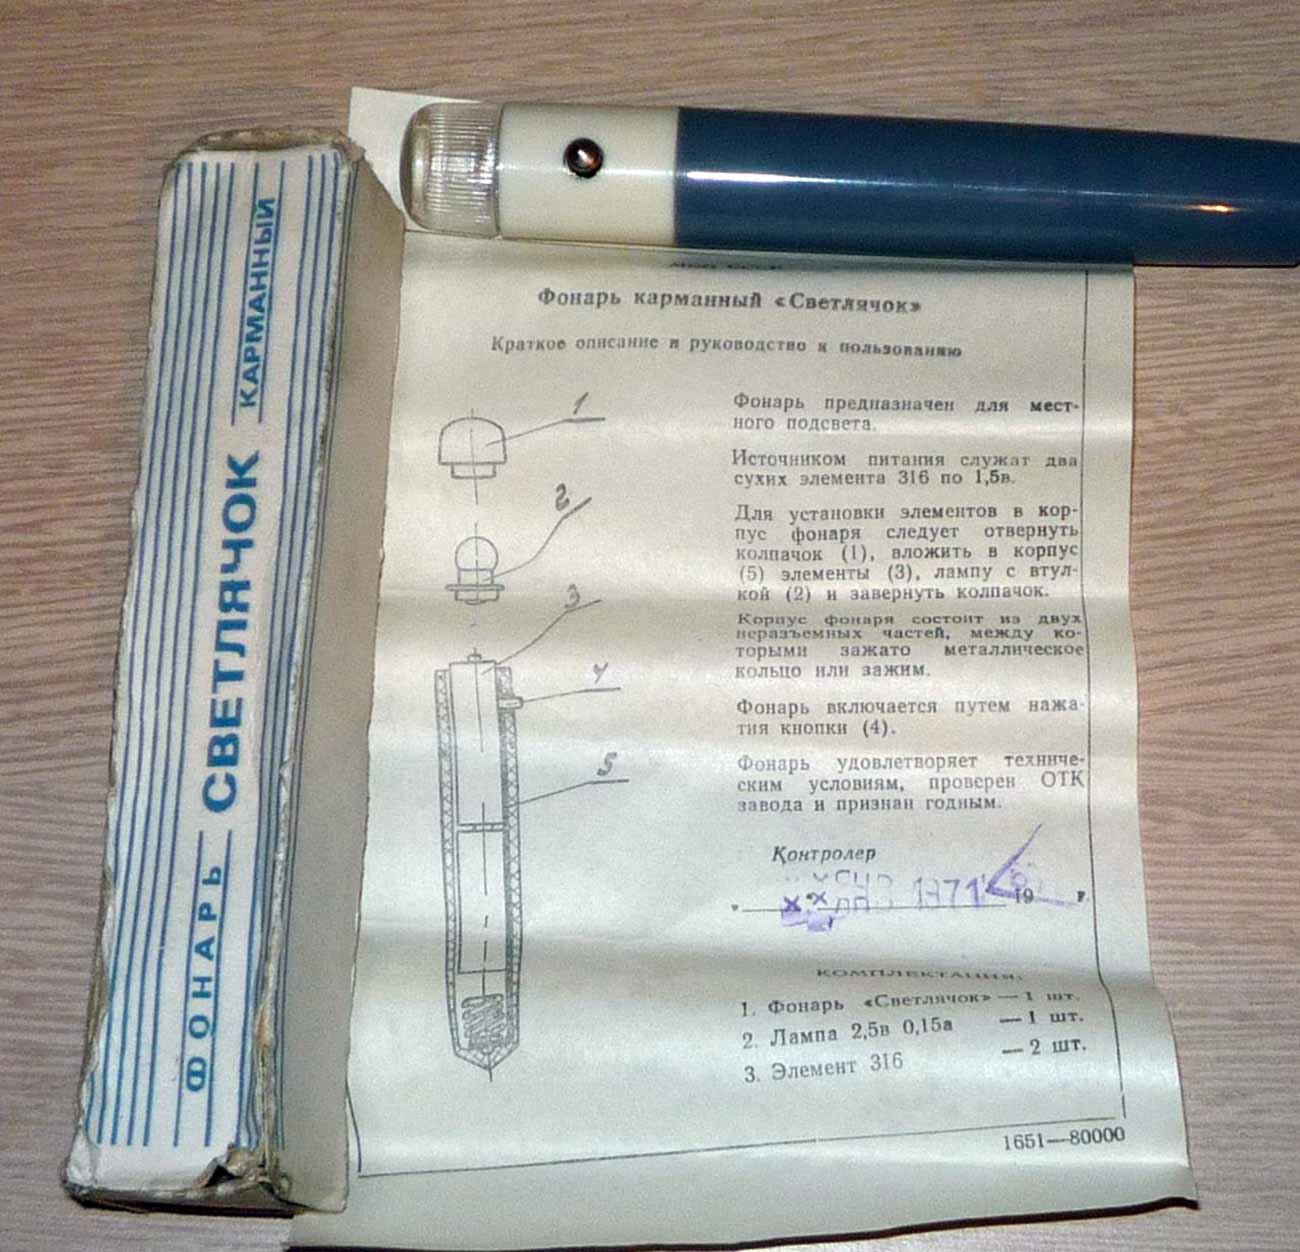 ФОНАРЬ СВЕТЛЯЧОК КАРМАННЫЙ
Фонарь карманный «Светлячок»
Краткое описание и руководство к пользованию
1
2
3
4
5
Фонарь предназначен для мест-
ного подсвета.
Источником питания служат два
сухих элемента 316 по 1,5в.
Для установки элементов в кор-
пус фонаря следует отвернуть
колпачок (1), вложить в корпус
(5) элементы (3), лампу с втул-
кой (2) и завернуть колпачок.
Корпус фонаря состоит из двух
неразъемных частей, между ко-
торыми зажато металлическое
кольцо или зажим.
Фонарь включается путем нажа-
тия кнопки (4).
Фонарь удовлетворяет техниче-
ским условиям, проверен ОТК
завода и признан годным.
Контролер
1971 19 г.
КОМПЛЕКТАЦИЯ:
1. Фонарь «Светлячок» — 1 шт.
2. Лампа 2,5в 0,15а — 1 шт.
3. Элемент 316 — 2 шт.
1651—80000